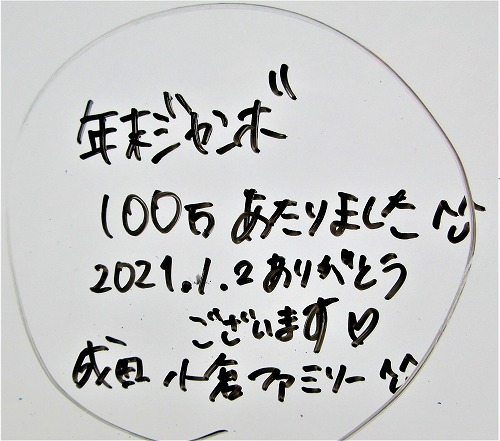 年末ジャンボ
100万 あたりました
2021.1.2 ありがとう
ございます♡
成田 小倉ファミリー